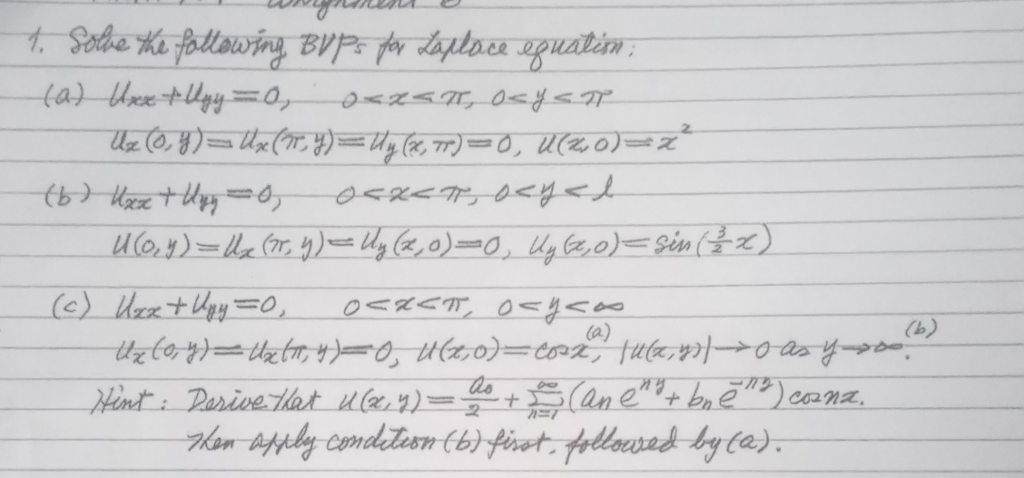 Assignment
1. Solve the following BVPs for Laplace equation:
(a) Uxx + Uyy = 0, 0 < x < π, 0 < y < π
Ux(0, y) = Ux(π, y) = Uy(x, π) = 0, U(x, 0) = x²
(b) Uxx + Uyy = 0, 0 < x < π, 0 < y < l
U(0, y) = Ux(π, y) = Uy(x, 0) = 0, Uy(x, 0) = sin(3/2 x)
(c) Uxx + Uyy = 0, 0 < x < π, 0 < y < ∞
Ux(0, y) = Ux(π, y) = 0, U(x, 0) = cosx,^(a) |U(x, y)| → 0 as y → ∞.^(b)
Hint: Derive that U(x, y) = a₀/2 + ∑_{n=1}^{∞} (aₙ e^{ny} + bₙ e^{-ny}) cosnx.
Then apply condition (b) first, followed by (a).